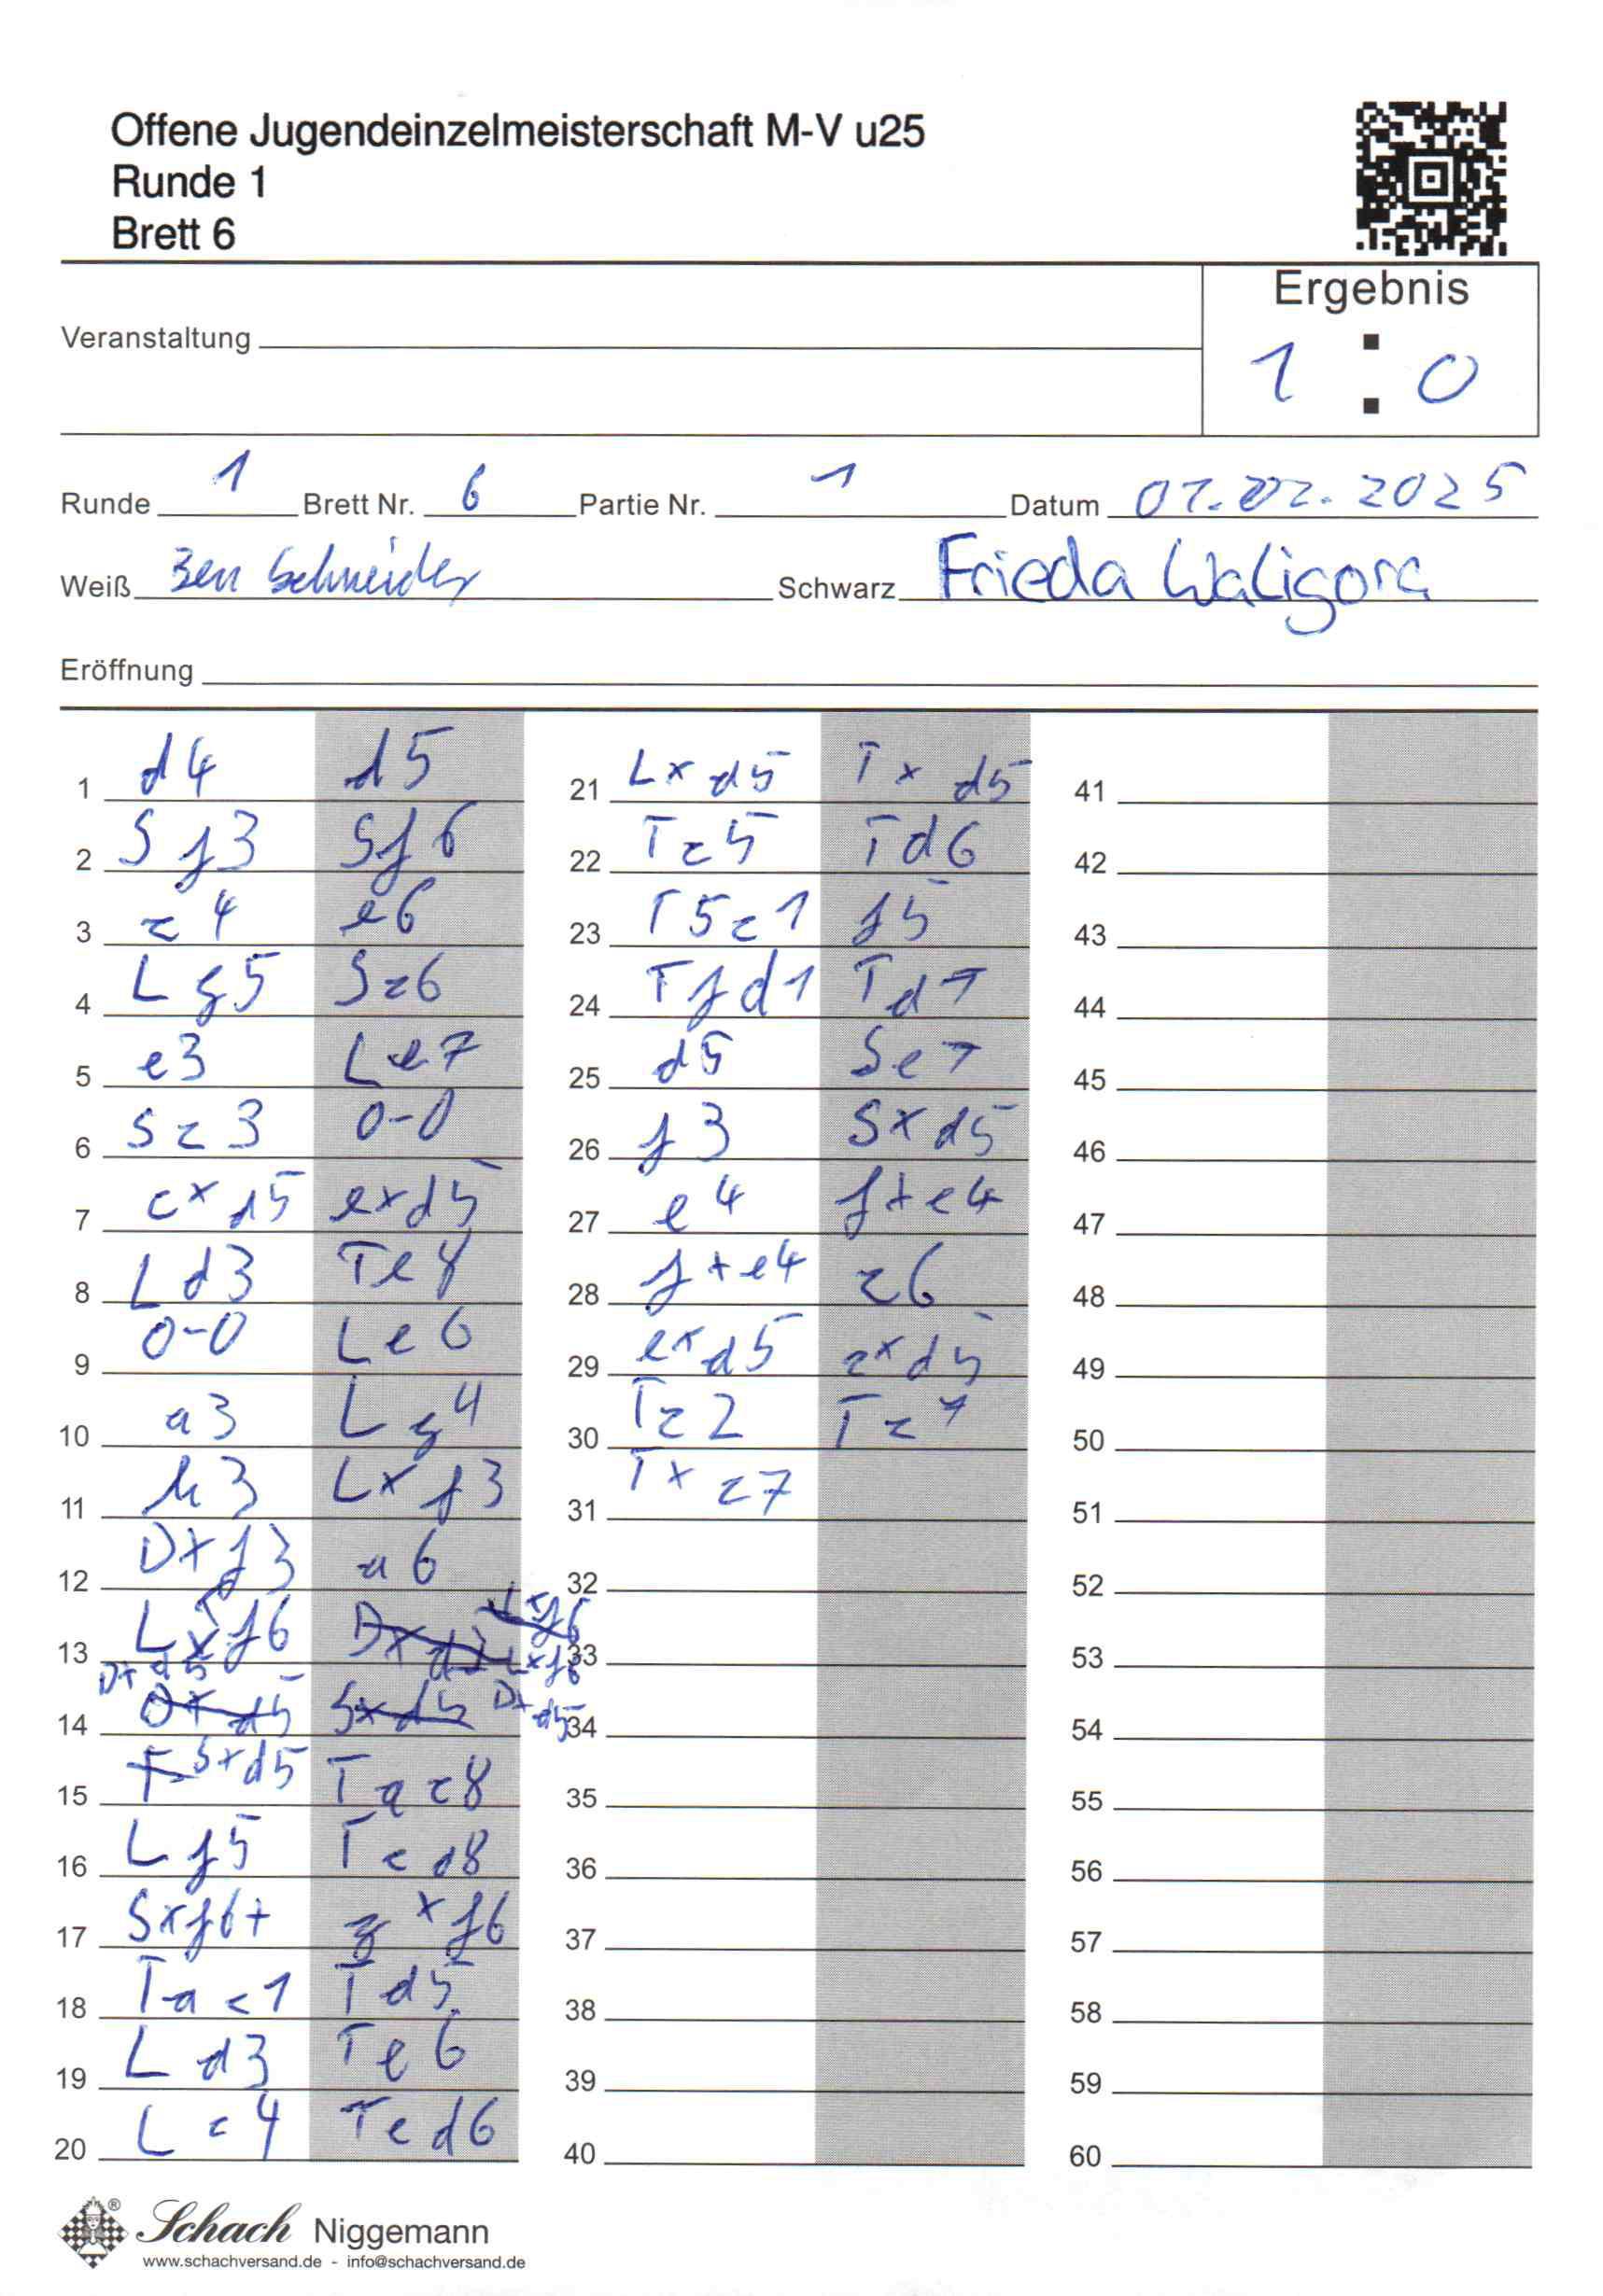 Offene Jugendeinzelmeisterschaft M-V u25
Runde 1
Brett 6
Ergebnis
1 : 0
Veranstaltung
Runde 1 Brett Nr. 6 Partie Nr. 1 Datum 01.02.2025
Weiß Ben Schneider Schwarz Frieda Waligora
Eröffnung
1 d4 d5
2 Sf3 Sf6
3 c4 e6
4 Lg5 Sc6
5 e3 Le7
6 Sc3 0-0
7 cxd5 exd5
8 Ld3 Te8
9 0-0 Le6
10 a3 Lg4
11 h3 Lxf3
12 Dxf3 a6
13 Lxf6 Lxf6
14 Dxd5 Dxd5
15 Sxd5 Tac8
16 Lf5 Tcd8
17 Sxf6+ gxf6
18 Tac1 Td5
19 Ld3 Te6
20 Lc4 Ted6
21 Lxd5 Txd5
22 Tc5 Td6
23 T5c1 f5
24 Tfd1 Td7
25 d5 Se7
26 f3 Sxd5
27 e4 fxe4
28 fxe4 c6
29 exd5 cxd5
30 Tc2 Tc7
31 Txc7
32
33
34
35
36
37
38
39
40
41
42
43
44
45
46
47
48
49
50
51
52
53
54
55
56
57
58
59
60
Schach Niggemann
www.schachversand.de - info@schachversand.de